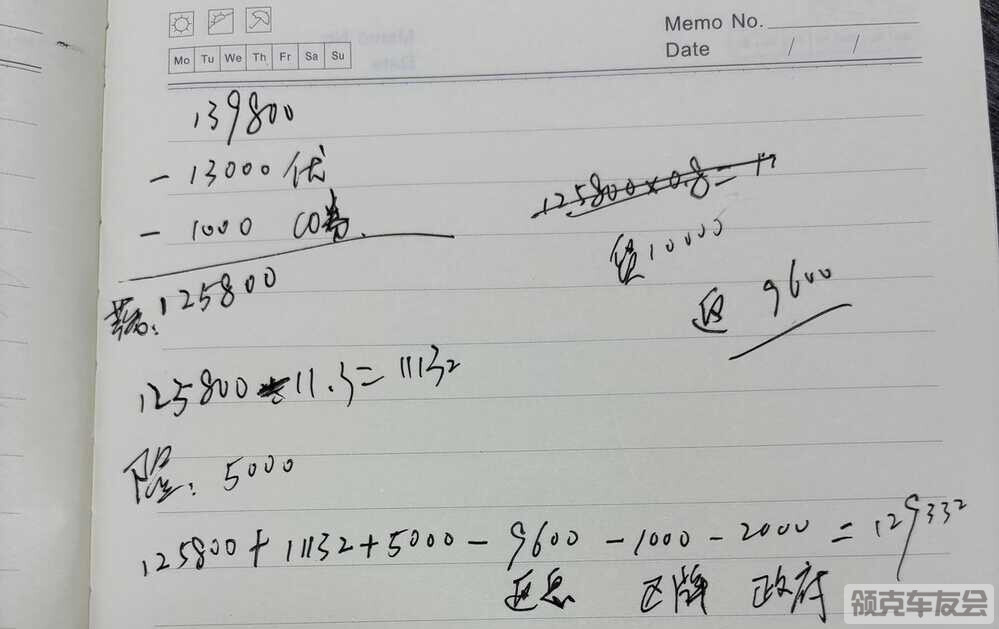 Memo No.
Mo Tu We Th Fr Sa Su
Date / /
139800
- 13000 优
- 1000 CO券
125800
125800×0.8=1
100000
返 9600
125800 ÷ 11.3 = 11132
险: 5000
125800 + 11132 + 5000 - 9600 - 1000 - 2000 = 129332
返息 区牌 政府
领克车友会